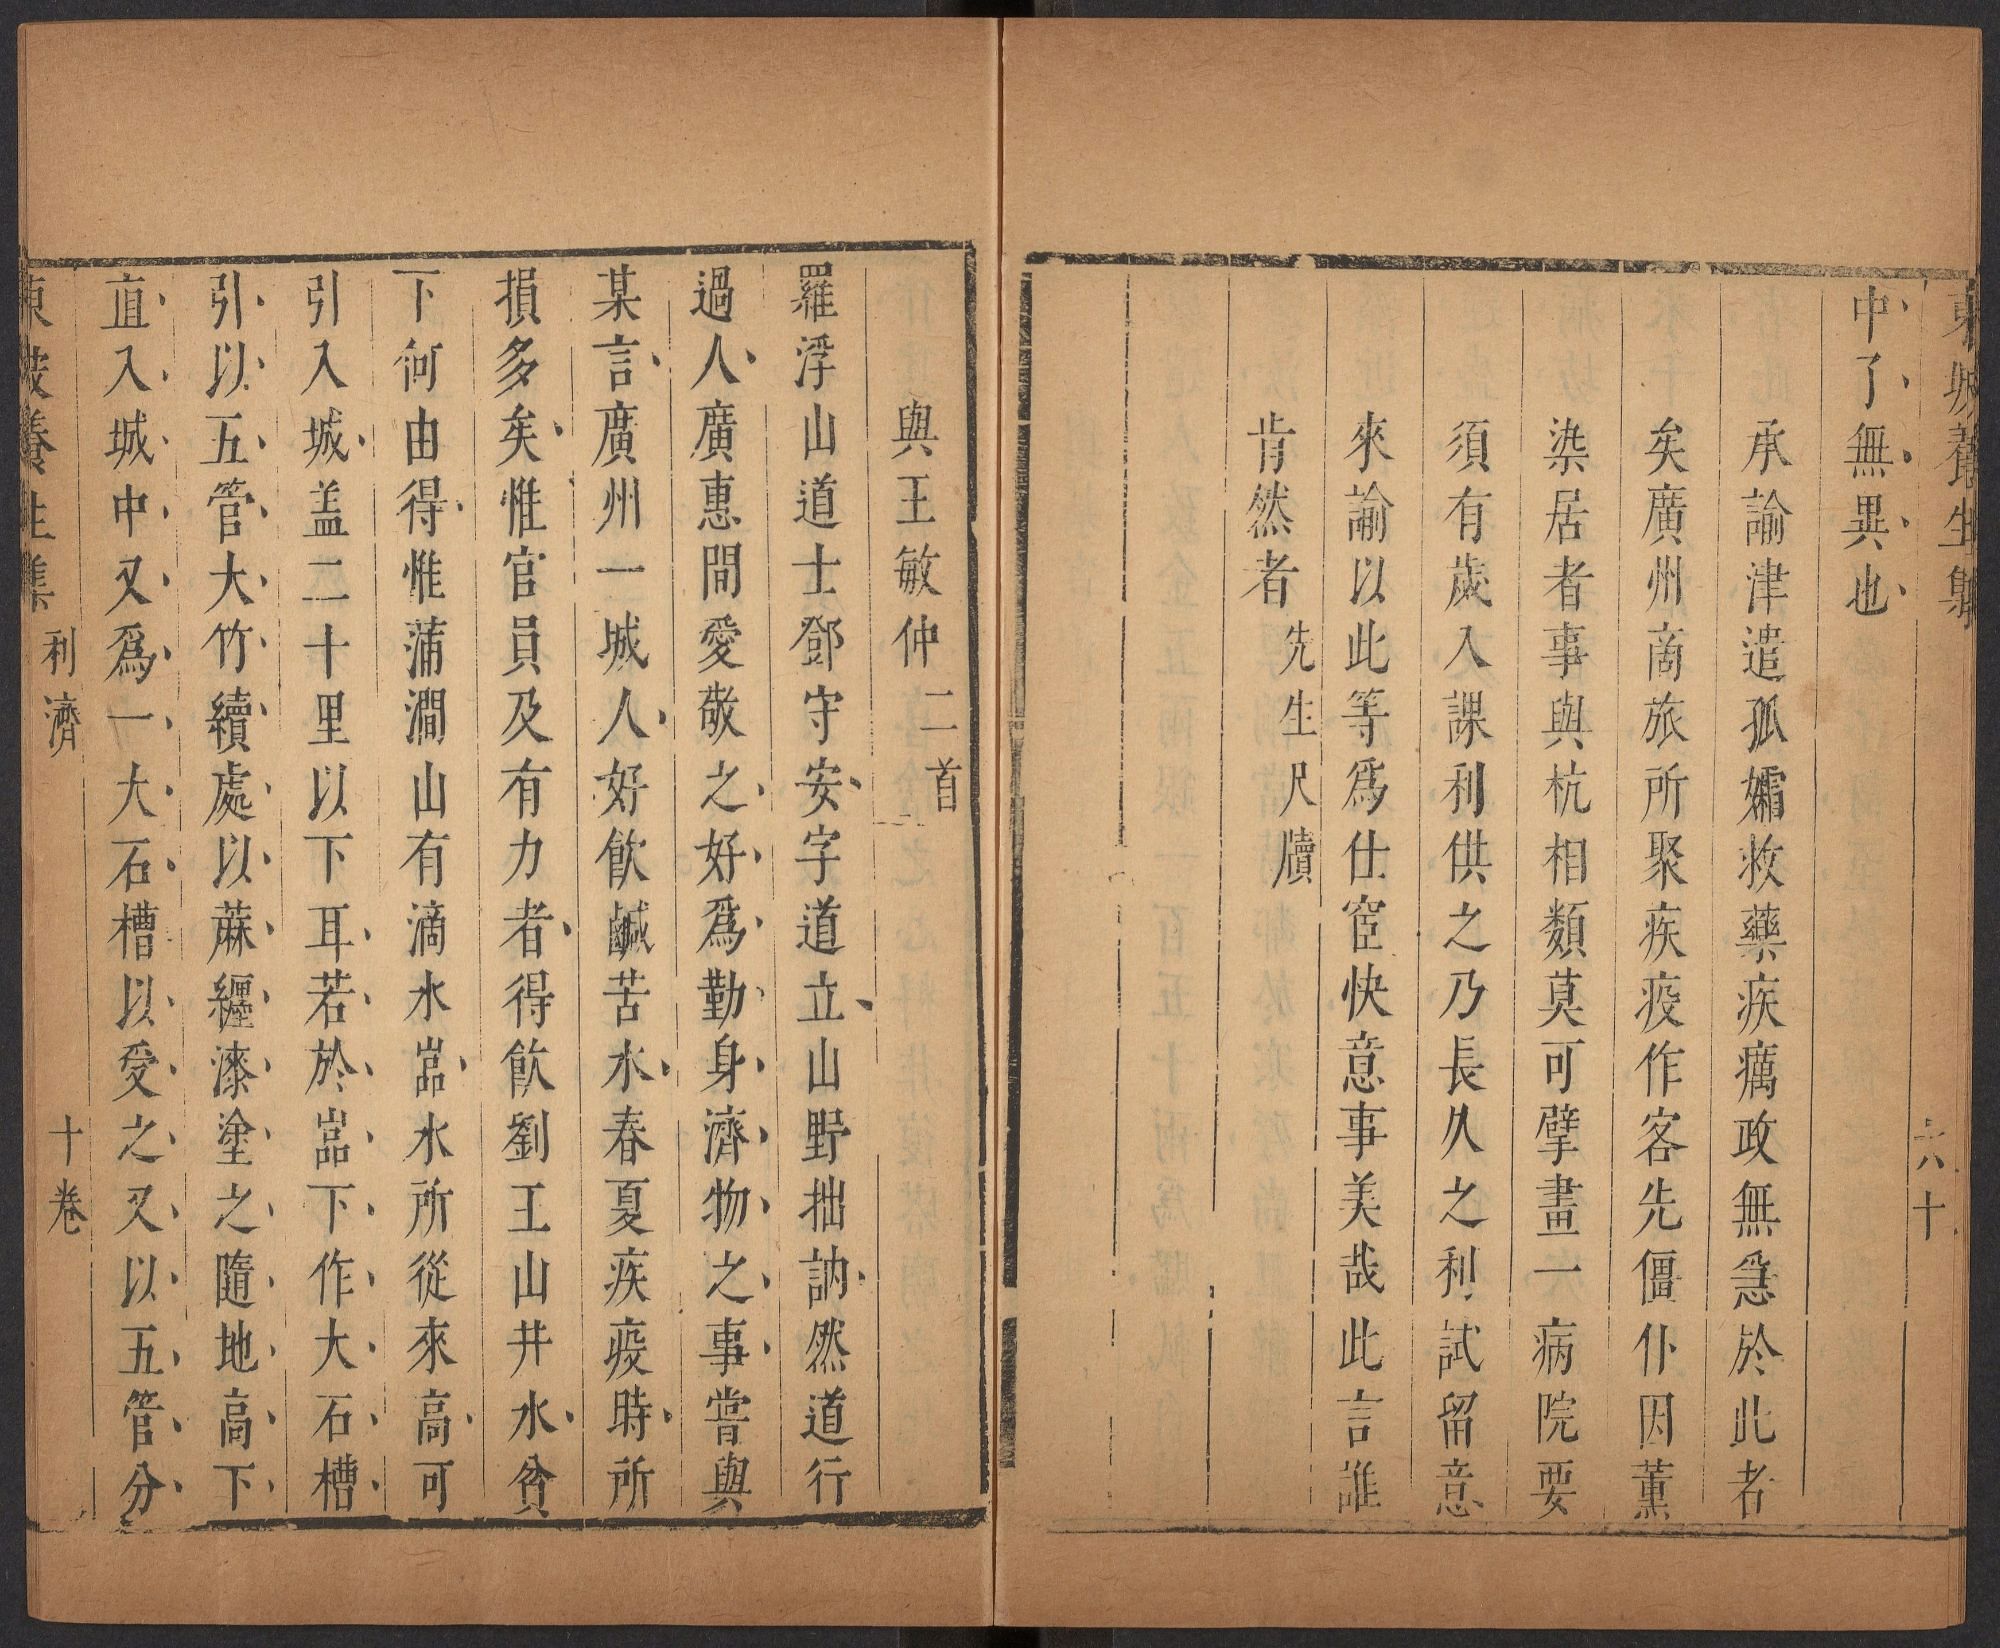 東坡養生集
六十
中了無異也
承諭津遣孤孀救藥疾癘政無急於此者
矣廣州商旅所聚疾疫作客先僵仆因薰
染居者事與杭相類莫可擘畫一病院要
須有歲入課利供之乃長久之利試留意
來諭以此等爲仕宦快意事美哉此言誰
肯然者先生尺牘
與王敏仲二首
羅浮山道士鄧守安字道立山野拙訥然道行
過人廣惠間愛敬之好爲勤身濟物之事嘗與
某言廣州一城人好飲鹹苦水春夏疾疫時所
損多矣惟官員及有力者得飲劉王山井水貧
下何由得惟蒲澗山有滴水嵓水所從來高可
引入城盖二十里以下耳若於嵓下作大石槽
引以五管大竹續處以蔴纏漆塗之隨地高下
直入城中又爲一大石槽以受之又以五管分
東坡養生集 利濟 十卷